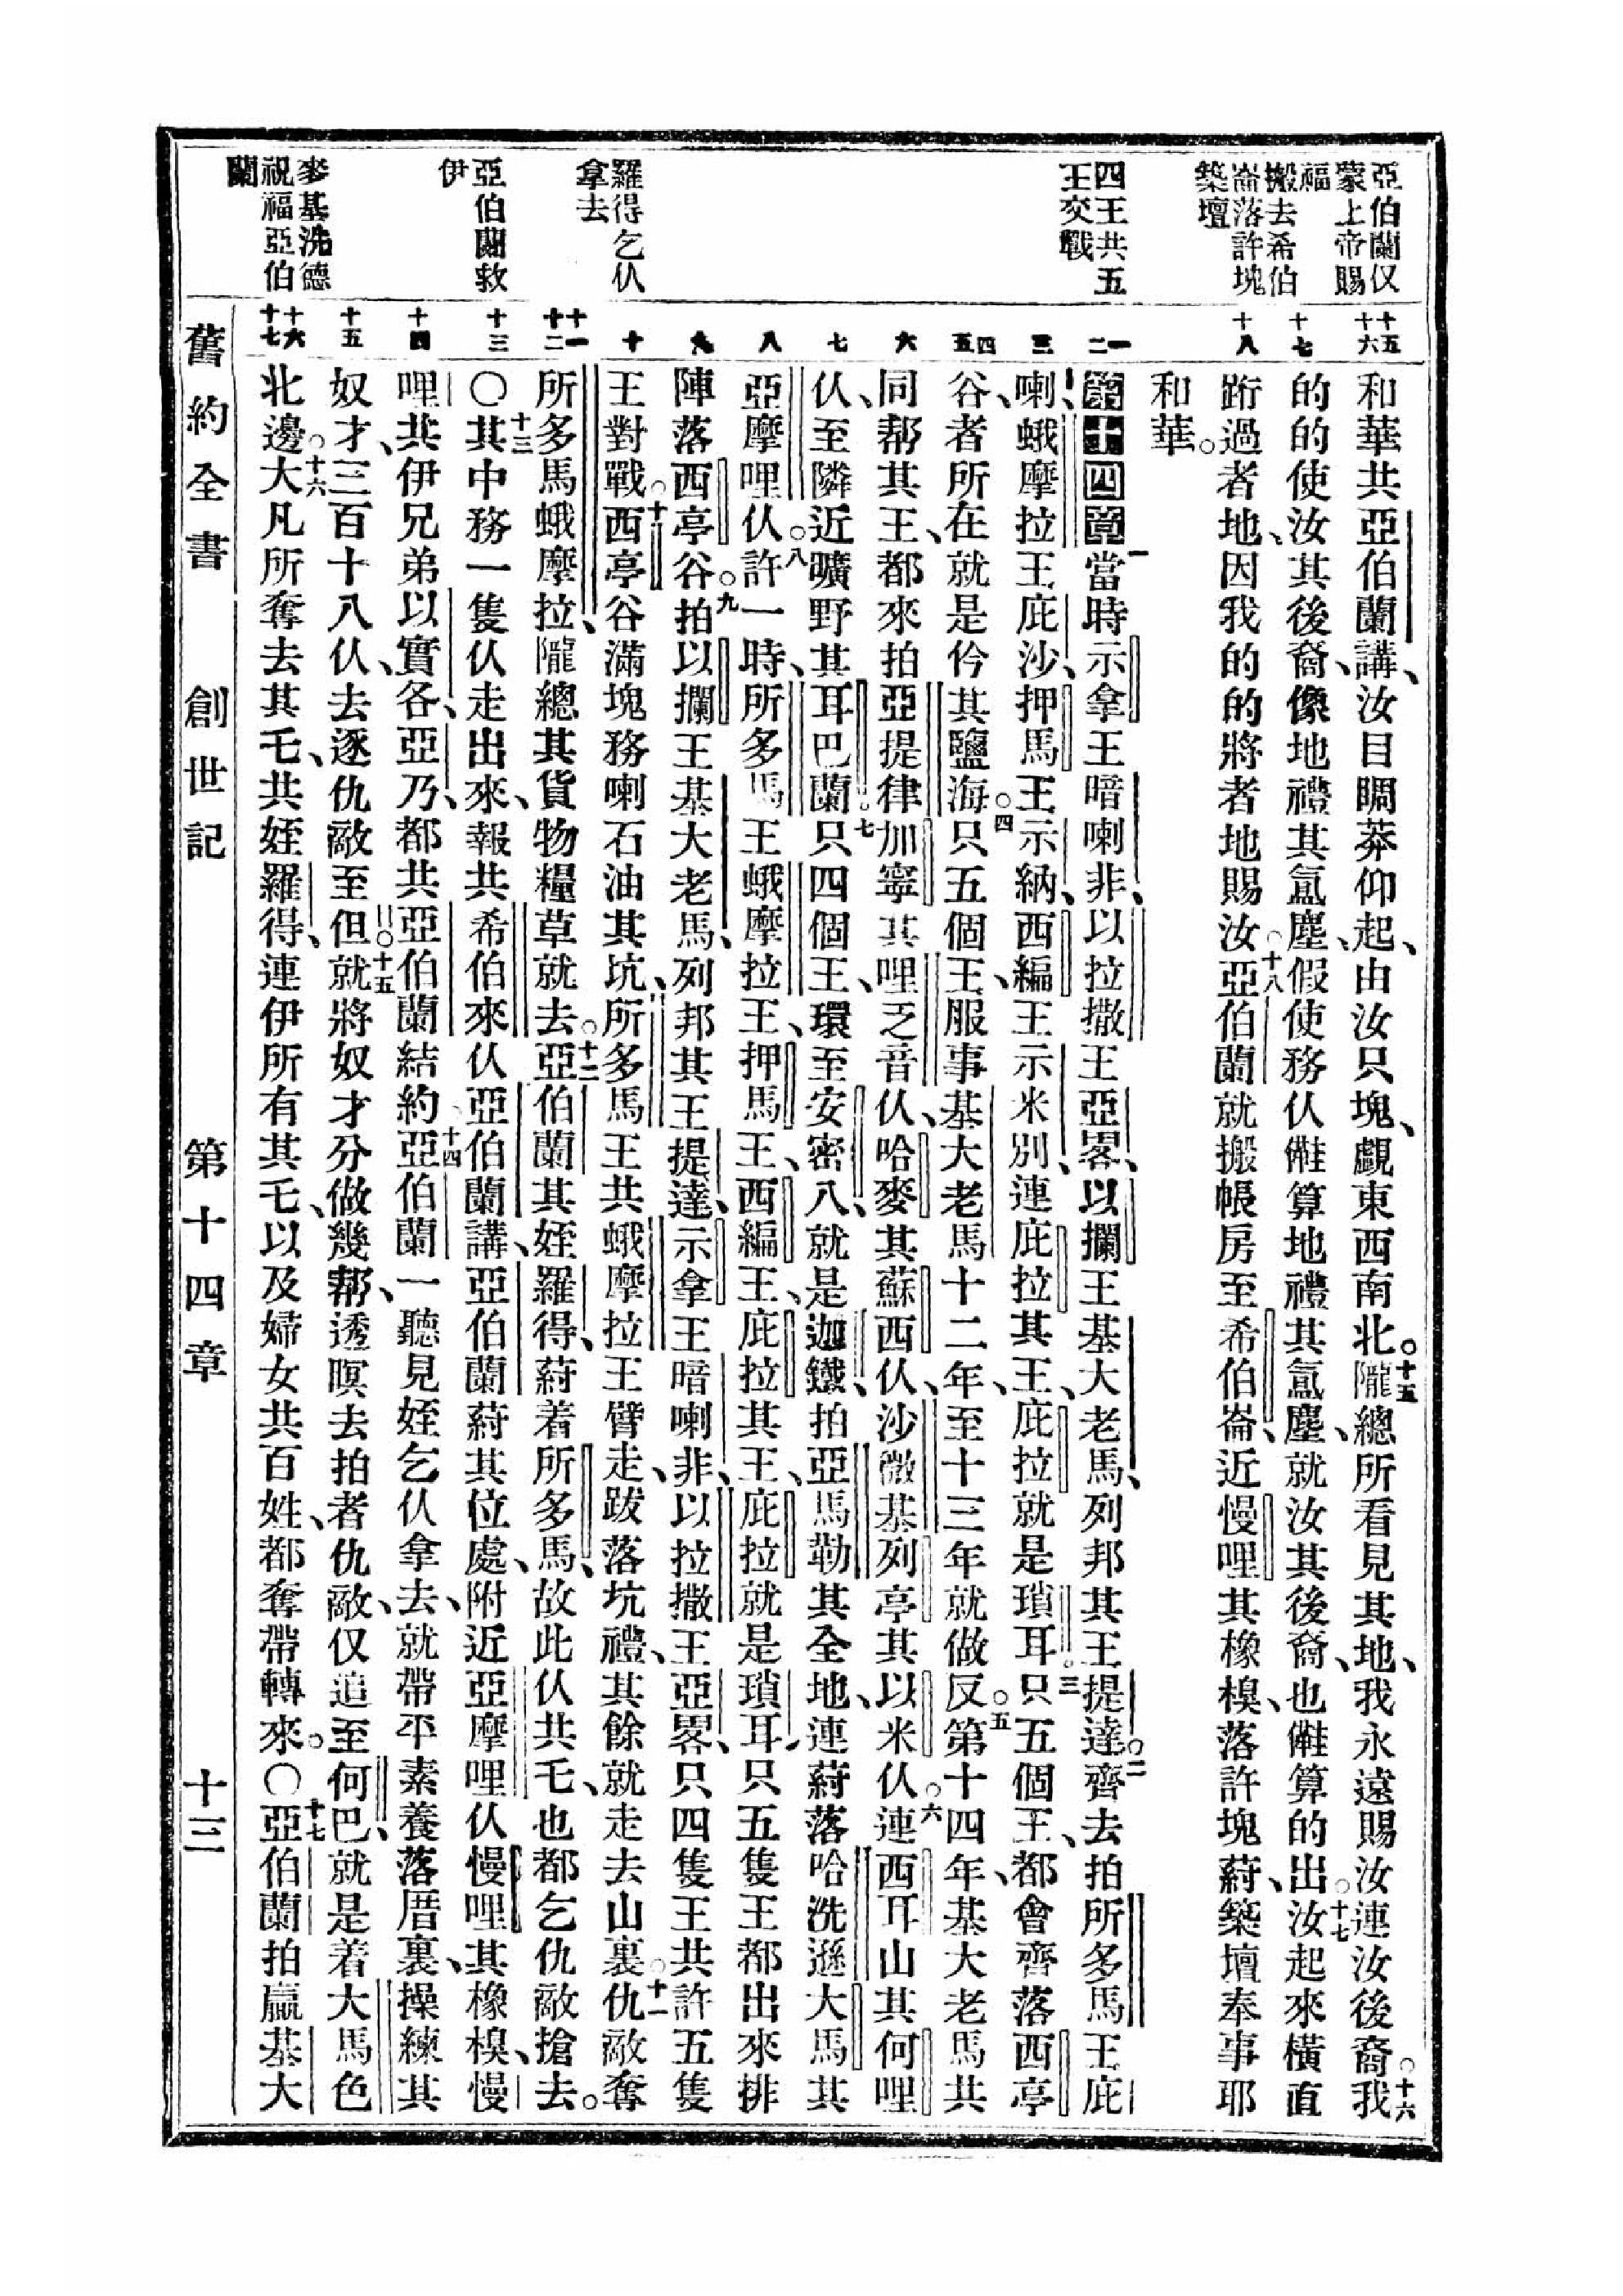 亞伯蘭仅
蒙上帝賜
福
搬去希伯
崙落許塊
築壇
四王共五
王交戰
羅得乞仈
拿去
亞伯蘭救
伊
麥基洗德
祝福亞伯
蘭
十五
十六
十七
十八
一
二
三
四
五
六
七
八
九
十
十一
十二
十三
十四
十五
十六
十七
和華共亞伯蘭講、汝目睭莽仰起、由汝只塊、覷東西南北。十五隴總所看見其地、我永遠賜汝連汝後裔。十六我
的的使汝其後裔、像地禮其氳塵、假使務仈𣍐算地禮其氳塵、就汝其後裔、也𣍐算的出。十七汝起來橫直
跲過者地、因我的的將者地賜汝。十八亞伯蘭就搬帳房至希伯崙、近慢哩其橡櫋、落許塊蒔、築壇奉事耶
和華。
第十四章 一當時示拿王暗喇非、以拉撒王亞畧、以攔王基大老馬、列邦其王提達。二齊去拍所多馬王庇
喇、蛾摩拉王庇沙、押馬王示納、西編王示米別、連庇拉其王、庇拉就是瑣耳。三只五個王、都會齊落西亭
谷、者所在就是仱其鹽海。四只五個王、服事基大老馬十二年、至十三年就做反。五第十四年、基大老馬共
同帮其王、都來拍亞提律加寧其哩乏音仈、哈麥其蘇西仈、沙微基列亭其以米仈。六連西耳山其何哩
仈、至隣近曠野其耳巴蘭。七只四個王、環至安密八、就是迦鐵、拍亞馬勒其全地、連蒔落哈洗遜大馬其
亞摩哩仈。八許一時、所多馬王蛾摩拉王、押馬王、西編王、庇拉其王、庇拉就是瑣耳、只五隻王都出來排
陣落西亭谷。九拍以攔王基大老馬、列邦其王提達、示拿王暗喇非、以拉撒王亞畧、只四隻王共許五隻
王對戰。十西亭谷滿塊務喇石油其坑、所多馬王共蛾摩拉王臂走、跋落坑禮、其餘就走去山裏。十一仇敵奪
所多馬蛾摩拉、隴總其貨物糧草就去。十二亞伯蘭其姪羅得、蒔着所多馬、故此仈共乇、也都乞仇敵搶去。
○十三其中務一隻仈走出來、報共希伯來仈亞伯蘭講、亞伯蘭蒔其位處、附近亞摩哩仈慢哩其橡櫋、慢
哩共伊兄弟以實各、亞乃、都共亞伯蘭結約。十四亞伯蘭一聽見姪乞仈拿去、就帶平素養落厝裏、操練其
奴才、三百十八仈、去逐仇敵至但。十五就將奴才分做幾帮、透暝去拍者仇敵、仅追至何巴、就是着大馬色
北邊。十六大凡所奪去其乇、共姪羅得、連伊所有其乇、以及婦女共百姓、都奪帶轉來。○十七亞伯蘭拍贏基大
舊約全書 創世記 第十四章 十三